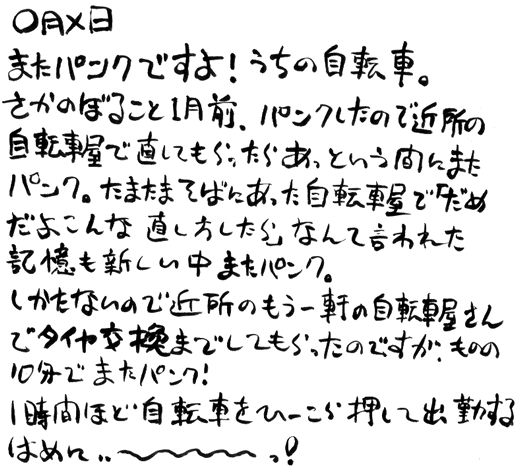 〇月×日
またパンクですよ！うちの自転車。
さかのぼること1月前、パンクしたので近所の
自転車屋で直してもらったらあっという間にまた
パンク。たまたまそばにあった自転車屋で「だめ
だよこんな直し方したら」なんて言われた
記憶も新しい中またパンク。
しかたないので近所のもう一軒の自転車屋さん
でタイヤ交換までしてもらったのですが、ものの
10分でまたパンク！
1時間ほど自転車をひーこら押して出勤する
はめに‥〜〜〜〜〜っ！